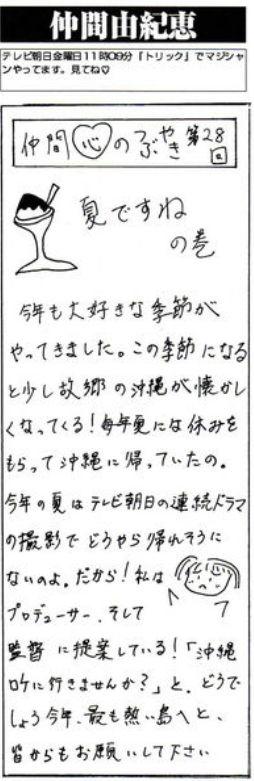 仲間由紀恵
テレビ朝日金曜日11時09分「トリック」でマジシャ
ンやってます。見てね♡
仲間心のつぶやき 第28回
夏ですね
の巻
今年も大好きな季節が
やってきました。この季節になる
と少し故郷の沖縄が懐かし
くなってくる!毎年夏には休みを
もらって沖縄に帰っていたの。
今年の夏はテレビ朝日の連続ドラマ
の撮影でどうやら帰れそうに
ないのよ。だから!私は
プロデューサー、そして
監督に提案している!「沖縄
ロケに行きませんか?」と、どうで
しょう今年、最も熱い島へと、
皆からもお願いして下さい